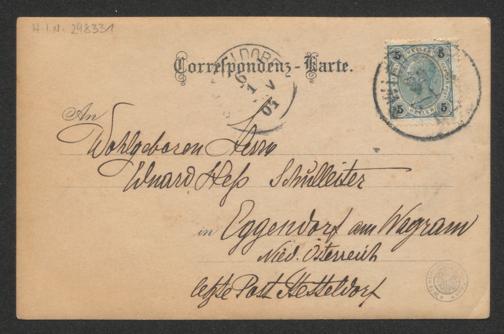 H.I.N. 248331
Correspondenz-Karte.
5 5
5 5
WIEN
6
1 V
01
An
Wohlgeboren Herrn
Eduard Heß Schulleiter
in Eggendorf am Wagram
Nied. Österreich
letzte Post Hetteldorf